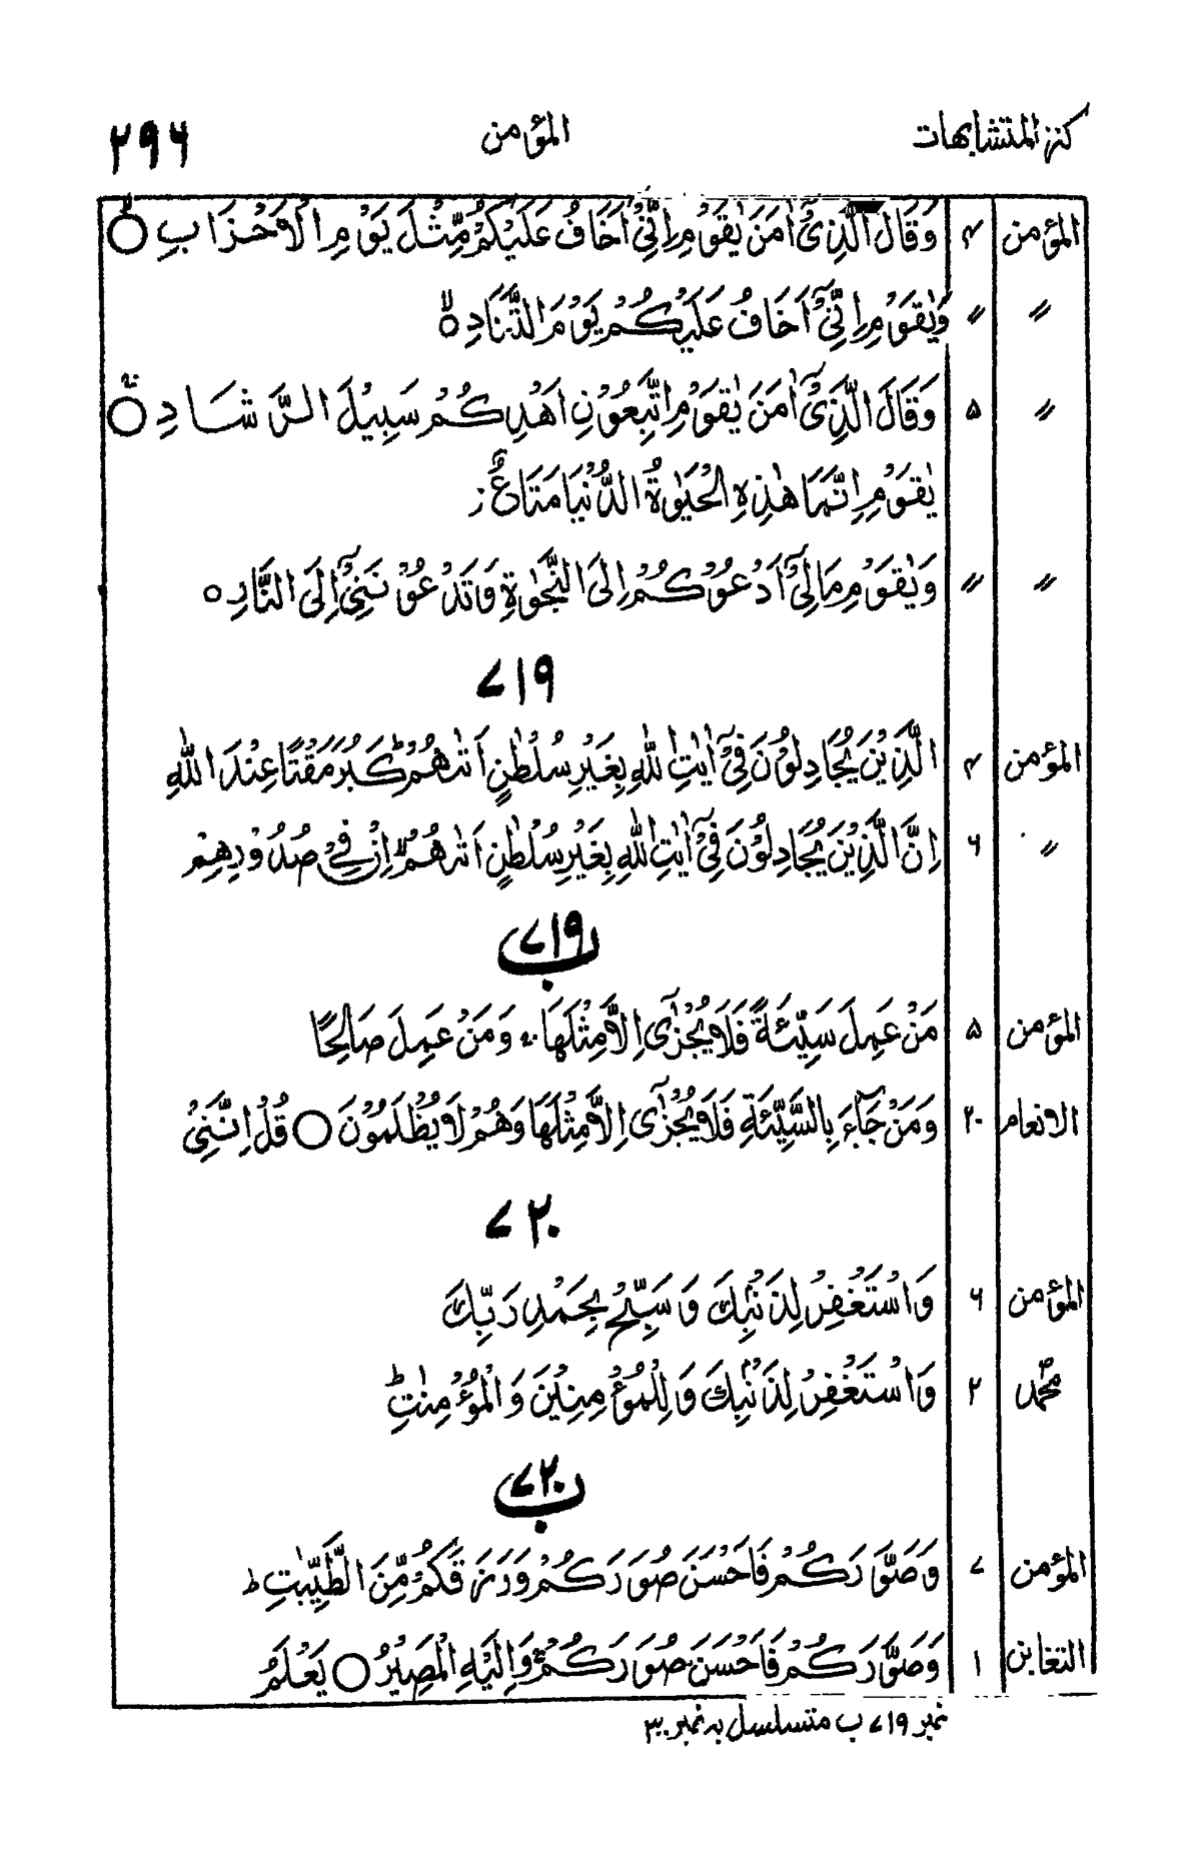 كنز المتشابهات المؤمن ۲۹۶
المؤمن ۴ وَقَالَ الَّذِیْۤ اٰمَنَ یٰقَوْمِ اِنِّیْۤ اَخَافُ عَلَیْكُمْ مِّثْلَ یَوْمِ الْاَحْزَابِ ۝ۙ
〃 〃 وَیٰقَوْمِ اِنِّیْۤ اَخَافُ عَلَیْكُمْ یَوْمَ التَّنَادِ ۝ۙ
〃 ۵ وَقَالَ الَّذِیْۤ اٰمَنَ یٰقَوْمِ اتَّبِعُوْنِ اَهْدِكُمْ سَبِیْلَ الرَّشَادِ ۝ۚ
یٰقَوْمِ اِنَّمَا هٰذِهِ الْحَیٰوةُ الدُّنْیَا مَتَاعٌ ز
〃 〃 وَیٰقَوْمِ مَا لِیْۤ اَدْعُوْكُمْ اِلَی النَّجٰوةِ وَتَدْعُوْنَنِیْۤ اِلَی النَّارِ ۝
۷۱۹
المؤمن ۴ الَّذِیْنَ یُجَادِلُوْنَ فِیْۤ اٰیٰتِ اللّٰهِ بِغَیْرِ سُلْطٰنٍ اَتٰهُمْ ؕ كَبُرَ مَقْتًا عِنْدَ اللّٰهِ
〃 ۶ اِنَّ الَّذِیْنَ یُجَادِلُوْنَ فِیْۤ اٰیٰتِ اللّٰهِ بِغَیْرِ سُلْطٰنٍ اَتٰهُمْ ۙ اِنْ فِیْ صُدُوْرِهِمْ
۷۱۹ ب
المؤمن ۵ مَنْ عَمِلَ سَیِّئَةً فَلَا یُجْزٰۤی اِلَّا مِثْلَهَا ۚ وَمَنْ عَمِلَ صَالِحًا
الانعام ۲۰ وَمَنْ جَآءَ بِالسَّیِّئَةِ فَلَا یُجْزٰۤی اِلَّا مِثْلَهَا وَهُمْ لَا یُظْلَمُوْنَ ۝ قُلْ اِنَّنِیْ
۷۲۰
المؤمن ۶ وَاسْتَغْفِرْ لِذَنْۢبِكَ وَسَبِّحْ بِحَمْدِ رَبِّكَ
محمّد ۲ وَاسْتَغْفِرْ لِذَنْۢبِكَ وَلِلْمُؤْمِنِیْنَ وَالْمُؤْمِنٰتِ ؕ
۷۲۰ ب
المؤمن ۷ وَصَوَّرَكُمْ فَاَحْسَنَ صُوَرَكُمْ وَرَزَقَكُمْ مِّنَ الطَّیِّبٰتِ ؕ
التغابن ۱ وَصَوَّرَكُمْ فَاَحْسَنَ صُوَرَكُمْ ۚ وَاِلَیْهِ الْمَصِیْرُ ۝ یَعْلَمُ
نمبر ۷۱۹ ب متسلسل بہ نمبر ۳۰